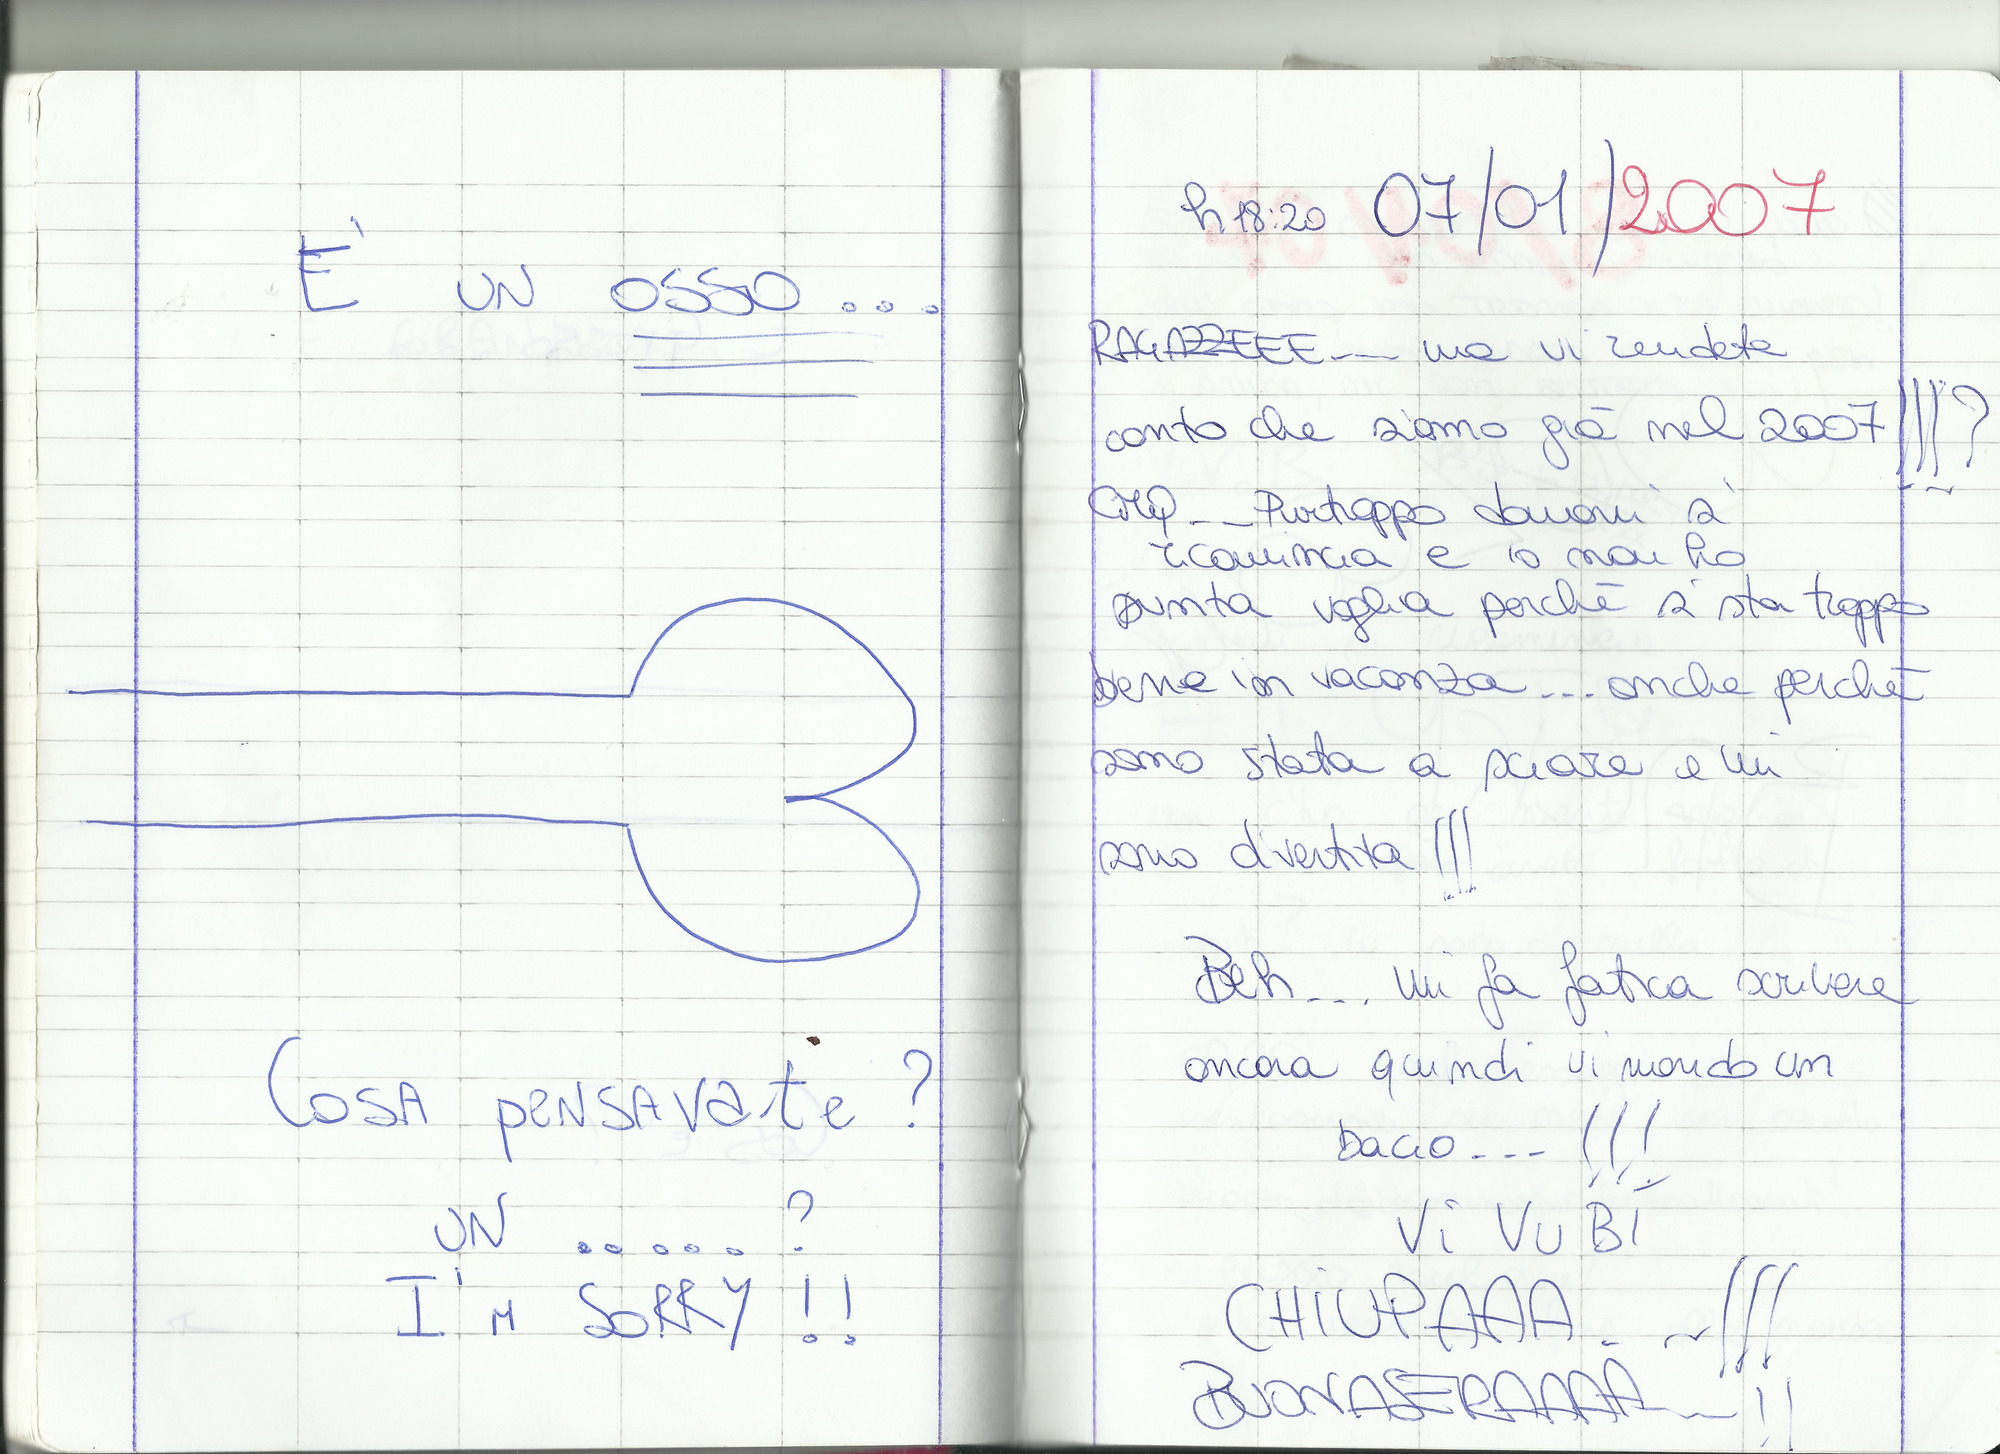 E' UN OSSO...
COSA PENSAVATE?
UN .....?
I'M SORRY!!
h 18:20 07/01/2007
RAGAZZEEE... ma vi rendete
conto che siamo già nel 2007!!!?
Purtroppo domani si
ricomincia e io non ho
punta voglia perchè si sta troppo
bene in vacanza... anche perchè
sono stata a sciare e mi
sono divertita!!!
Beh.... mi fa fatica scrivere
ancora quindi vi mando un
bacio...!!!
Vi VU BI
CHIUPAAA..!!!
BUONASERAAAA...!!